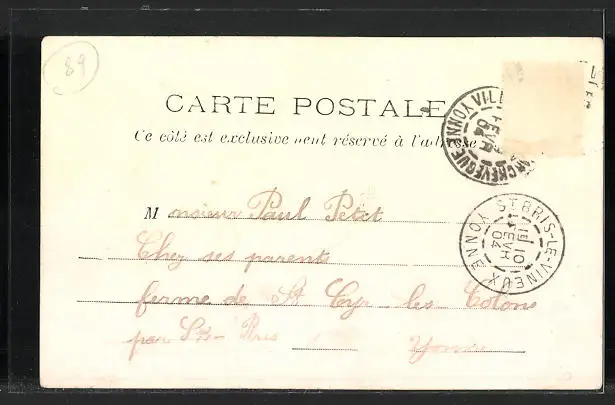 89
CARTE POSTALE
Ce côté est exclusivement réservé à l'adresse
VILLE ARCHEVEQUE YONNE
FEVR 04
Monsieur Paul Petit
Chez ses parents
ferme de St Cyr les Colons
par St- Bris Yonne
ST BRIS-LE-VINEUX YONNE
10 FEVR 04